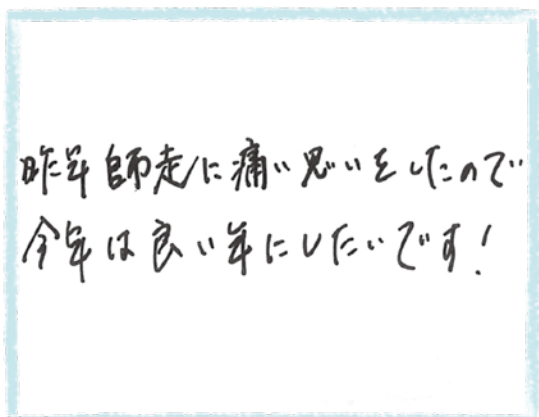 昨年師走に痛い思いをしたので
今年は良い年にしたいです!